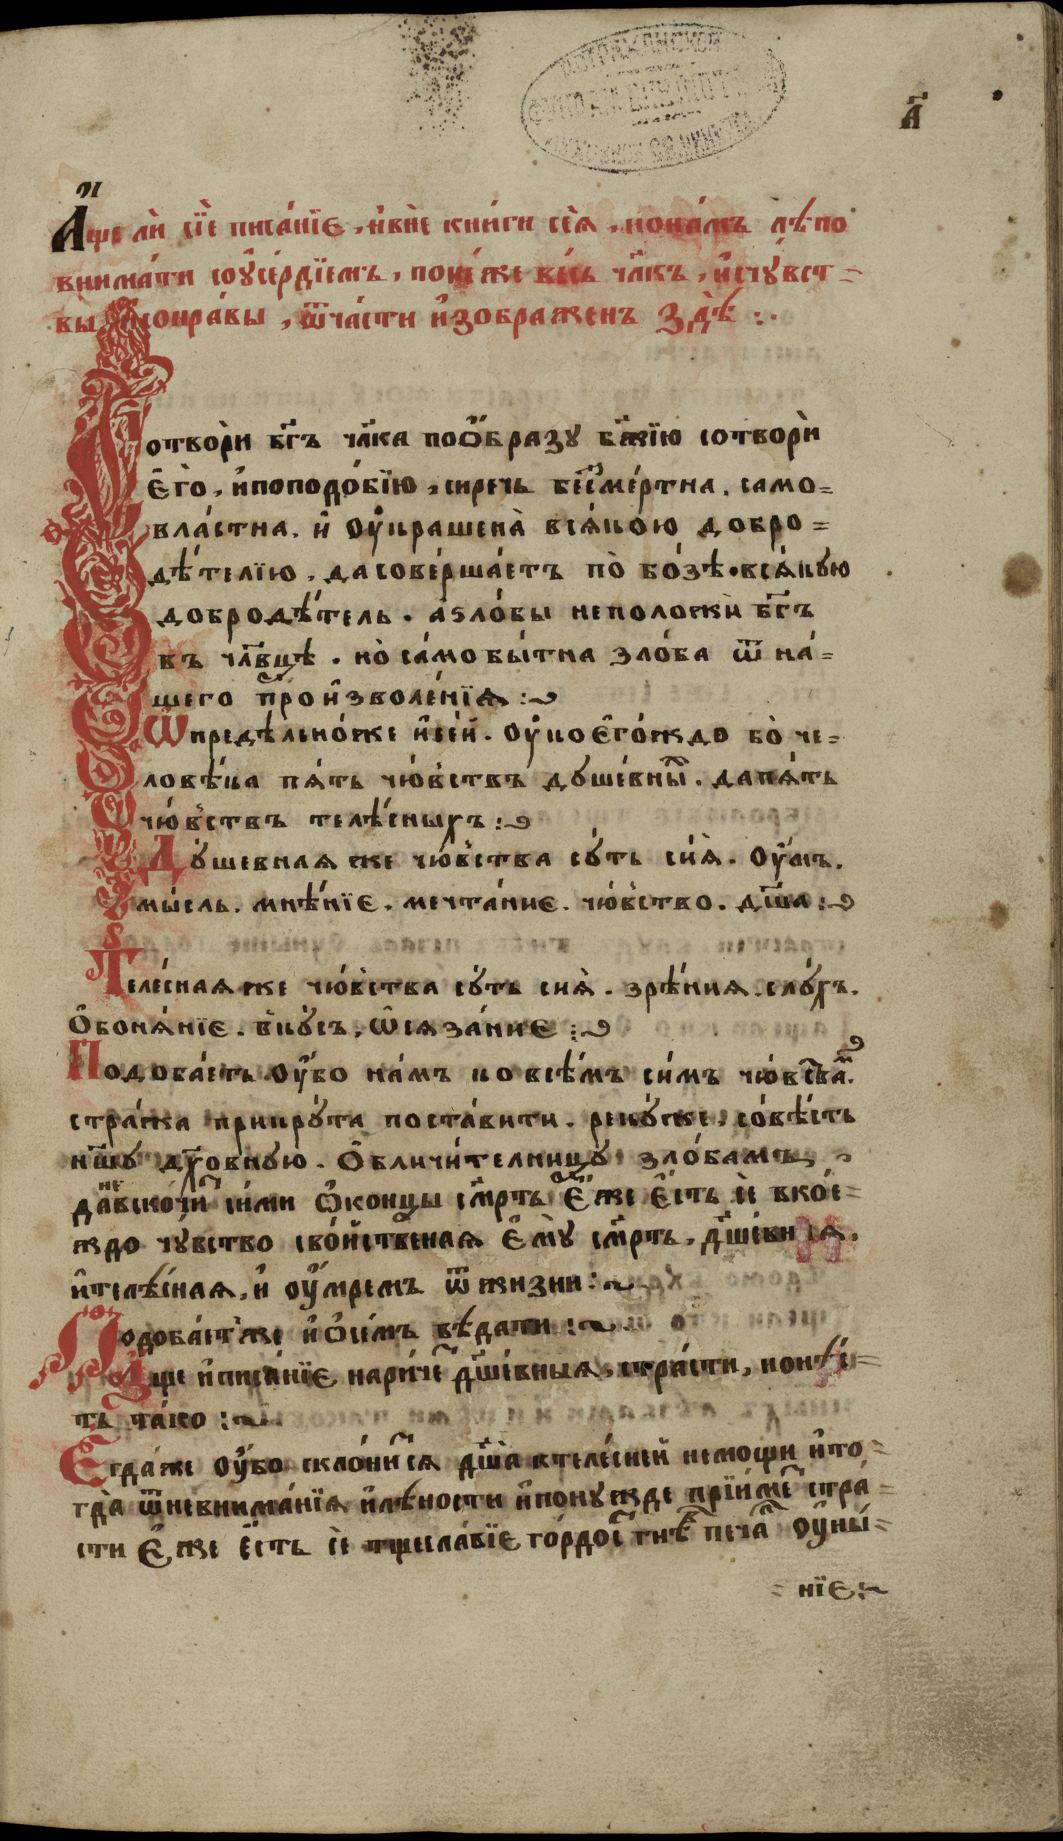 а҃
А҆ще ли̑ сїѐ писа́нїє, и҆вне̑ кни́ги сея̀, но на́мъ лѣ́по
внима́ти соу҆се́рдїемъ, поне́же ве́сь чл҃къ, и҆счу́вст=
вы и҆нонра́вы, ѿча́сти и҆зображе́нъ здѣ̀ :·
Сотвори̑ бг҃ъ чл҃ка поѻ҆́бразу бж҃їю сотвори̑
є҆го̀, и҆поподо́бїю, сиречь бе́зсме́ртна, само=
вла́стна. и҆ оу҆краше́на вся́кою добро=
дѣ́телїю, да соверша́етъ по̀ бо́зѣ вся́кую
добродѣ́тель. а҆ѕло́бы не положѝ бг҃ъ
въ чл҃вцѣ. но̀ самобы́тна зло́ба ѿ на́=
шего произволе́нїя :~
Ѿпредѣлено́же и҆се́й. оу҆коє҆го́ждо бо̀ че=
ловѣ́ка пя́ть чю́вствъ душе́вны́х. да пя́ть
чю́вствъ телѣ́сныхъ :~
Душевная же чю́вства су́ть сия̀. оу҆́мъ.
мы́сль. мнѣ́нїє. мечта́ниє. чю́вство. дш҃а :~
Теле́сная же чю́вства су́ть сия̀. зрѣ́ния. слу́хъ.
Ѻ҆боня́нїє. вку́съ, ѡ҆сяза́ниє :~
Подоба́етъ оу҆́бо на́мъ ко всѣ́мъ си́мъ чю́вства́м
стра́жа прикру́та поста́вити. реку́же, со́вѣсть
нш҃у дх҃овную. Ѻ҆бличи́телницу зло́бамъ,
да невско́чи́т си́ми ѻ҆концы см҃рть є҆́же є҆́сть сѐ вкое́=
ждо чу́вство сво́йственая є҆му̀ см҃рть, дш҃е́вная.
и҆телѣ́сная, и҆ оу҆́мремъ ѿ жизни :~
Подоба́етже и҆ ѻ҆се́мъ вѣ́дати :~
А҆ще и҆писа́нїє нариче́т дш҃е́вныя, стра́сти, нонѣ́с=
ть та́ко :~
Є҆гда́же оу҆́бо склони́тся дш҃а̀ ктеле́сней немощи и҆то=
гда̀ ѿневнима́нїя и҆лѣ́ности и҆понужде прїи́мет стра=
сти є҆́же є҆́сть сѐ тщесла́вїє го́рдость гнѣ́в печа́ль оу҆ны́=
=нїє :~